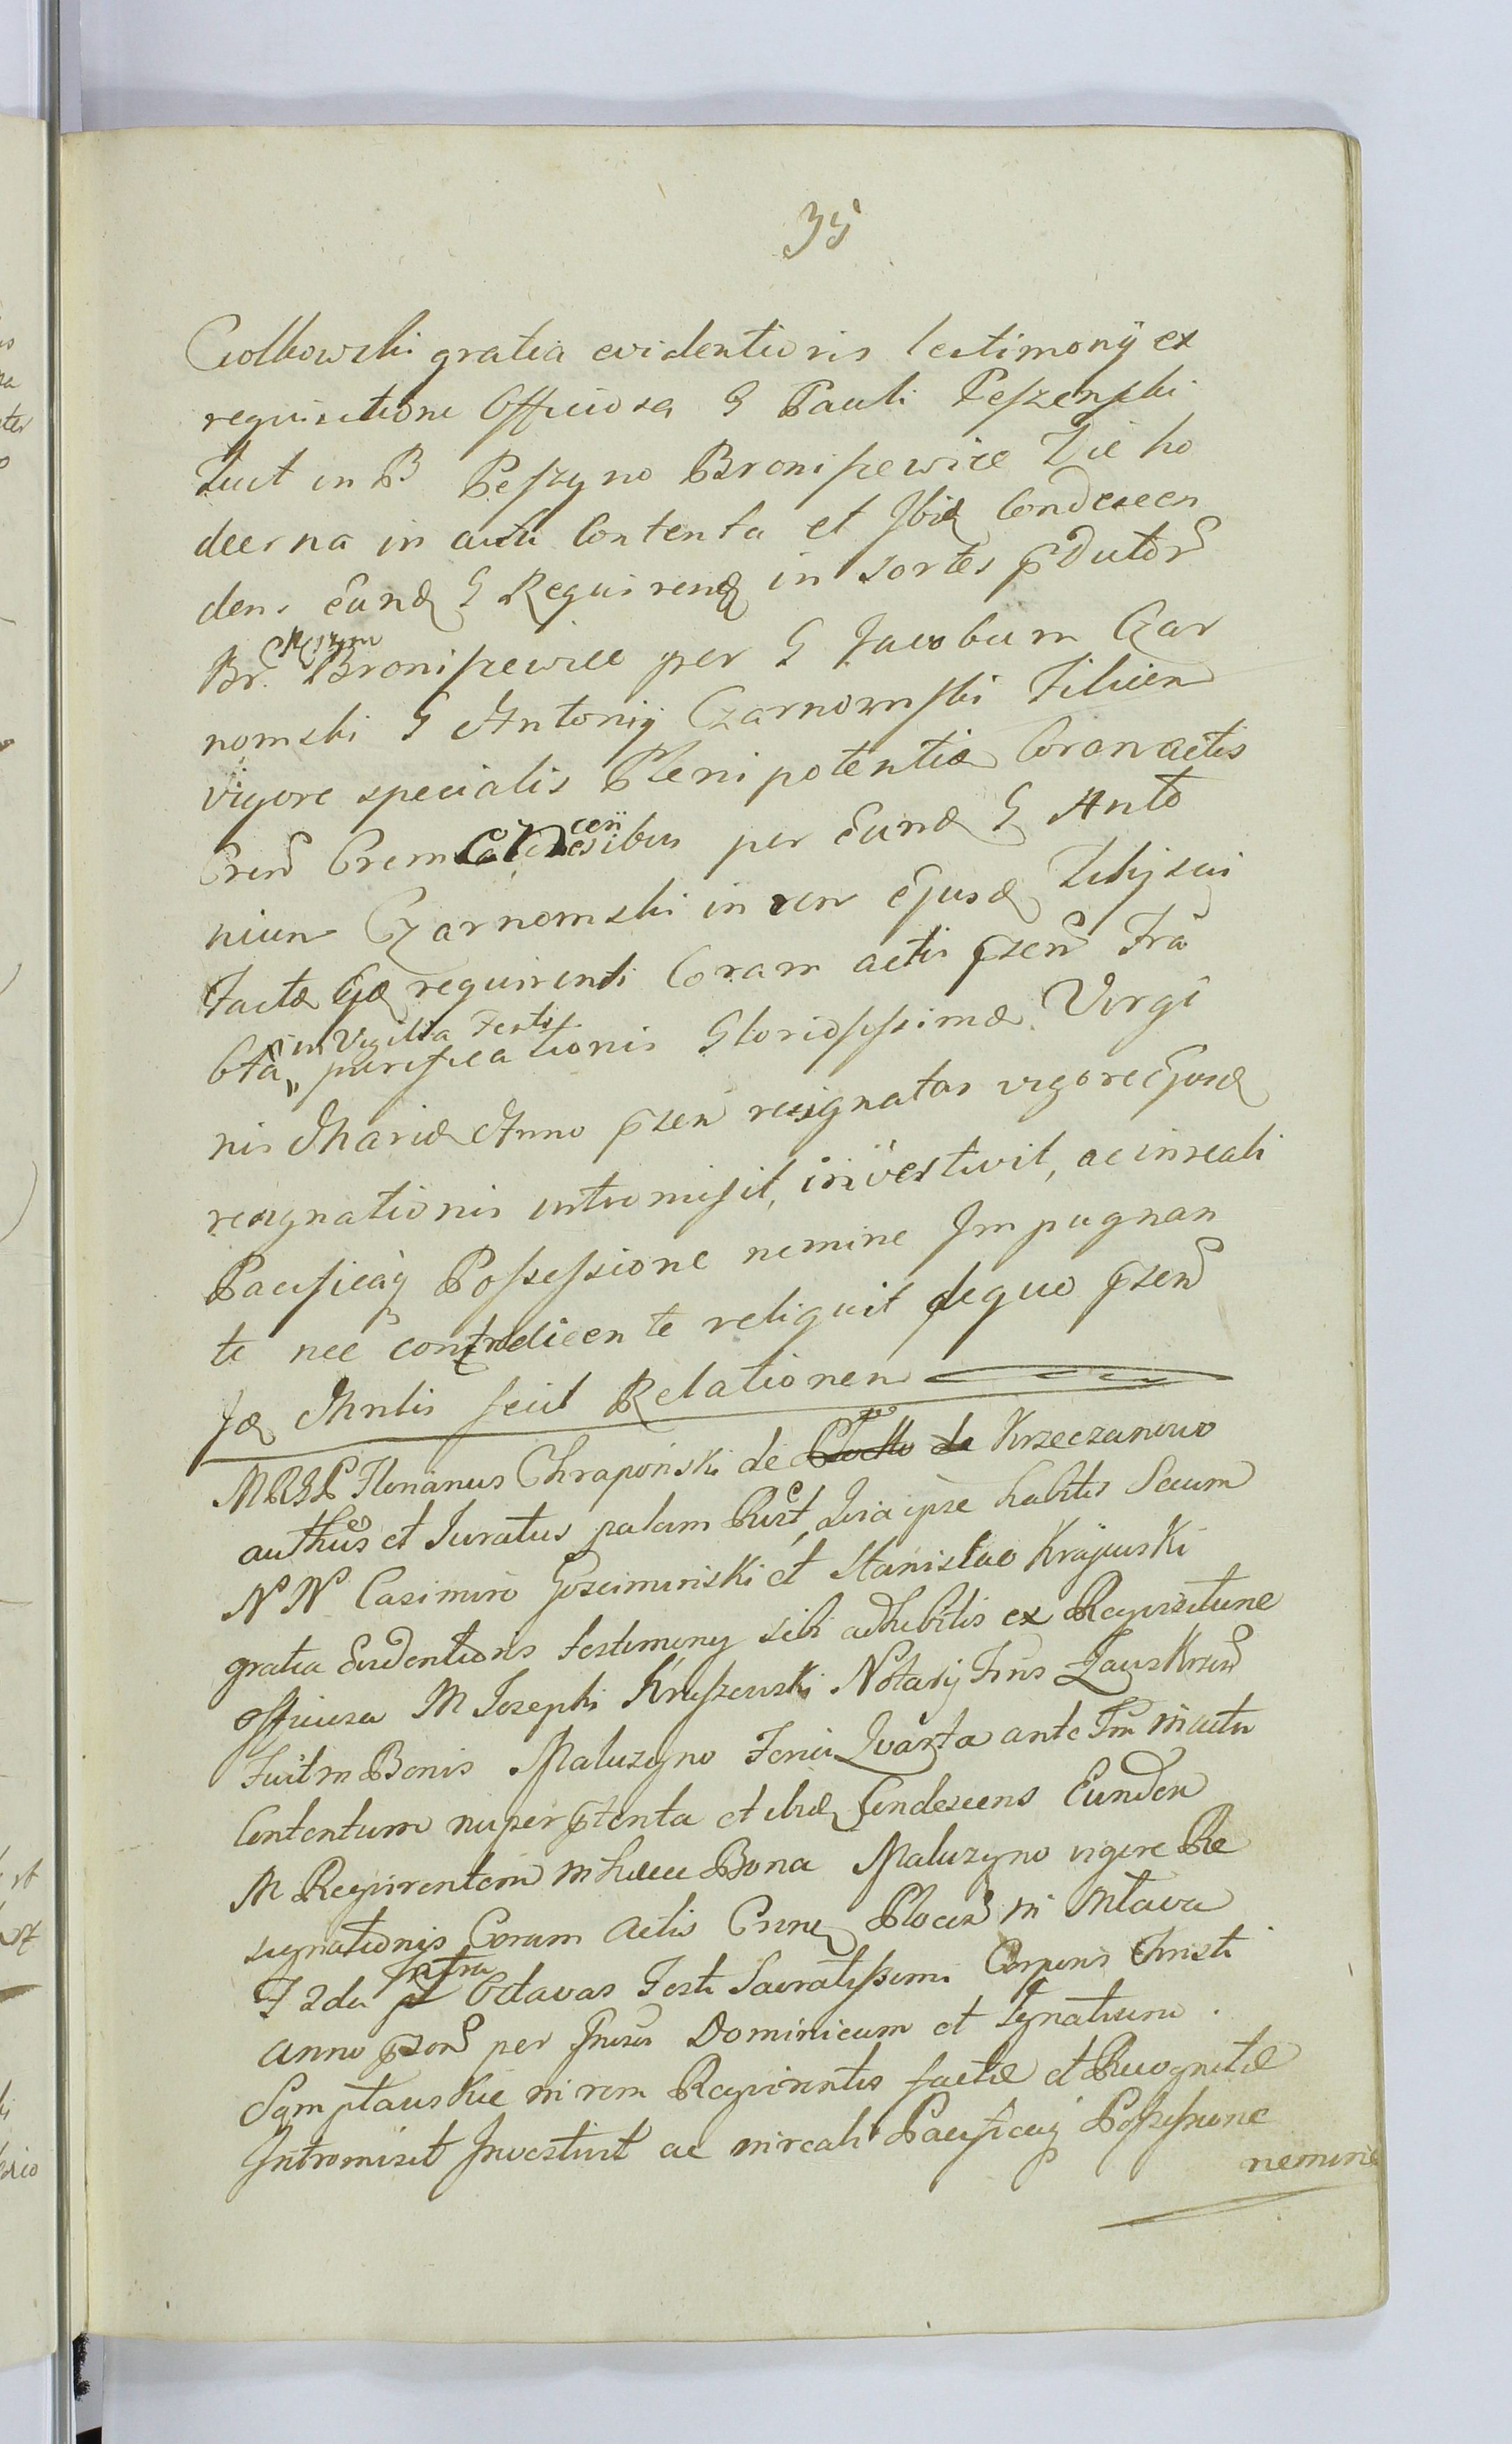 35
Ciolkowski gratia evidentioris testimonij ex
requisitione Officiosa G Pauli Peszenski
Fuit in B Peszyno Broniszewice Die ho
dierna in actu Contenta et Ibidę Condescen
dens Eundę G Requirendę in sortes p̃dutor
Br. Peszyno Broniszewice per G Jacobum Czar
nomski G Antonij Czarnomski Filium
vigore specialis Plenipotentiæ Coram actis
Cren Crem cen sibus per Eundę G Anto
nium Czarnomski in rem Ejusdę Filij sui
Factæ Ejdę requirenti Coram actis p̃sen Fra
Cta in Vigilia Festi purificationis Gloriosissimæ Virgi
nis Mariæ Anno p̃sen resignatas vigore Ejusdę
resignationis intromisit, investivit, ac in reali
Pacificaq Possessione nemine Impugnan
te nec contradicente reliquit de quo p̃sen
Idę Mntlis fecit Relationem
MRGP Florianus Chraponski de Plocko de Krzeczanowo
authus et Juratus palam Rect, Quia ipse habitis Secum
NN Casimiro Gosciminski et Stanislao Krajewski
gratia Evidentioris testimony sibi adhibitis ex Requisitione
officiosa M Josephi Kraszewski Notarij Trns Zawskrzen
Fuit in Bonis Maluzyno Feria Quarta ante Fm in actu
Contentum nuper p̃tenta et ibidę Condescens Eundem
M Requirentem in haec Bona Maluzyno vigore Re
signationis Coram Actis Crnę Plocen in Mlava
F 2da infra Octavas Festi Sacratissimi Corporis Christi
anno p̃sen per Gnosos Dominicum et Ignatium
Samplawskie in rem Requirentis factæ et Recognitæ
Intromisit Investivit ac in reali Pacificaq Possessione
nemine